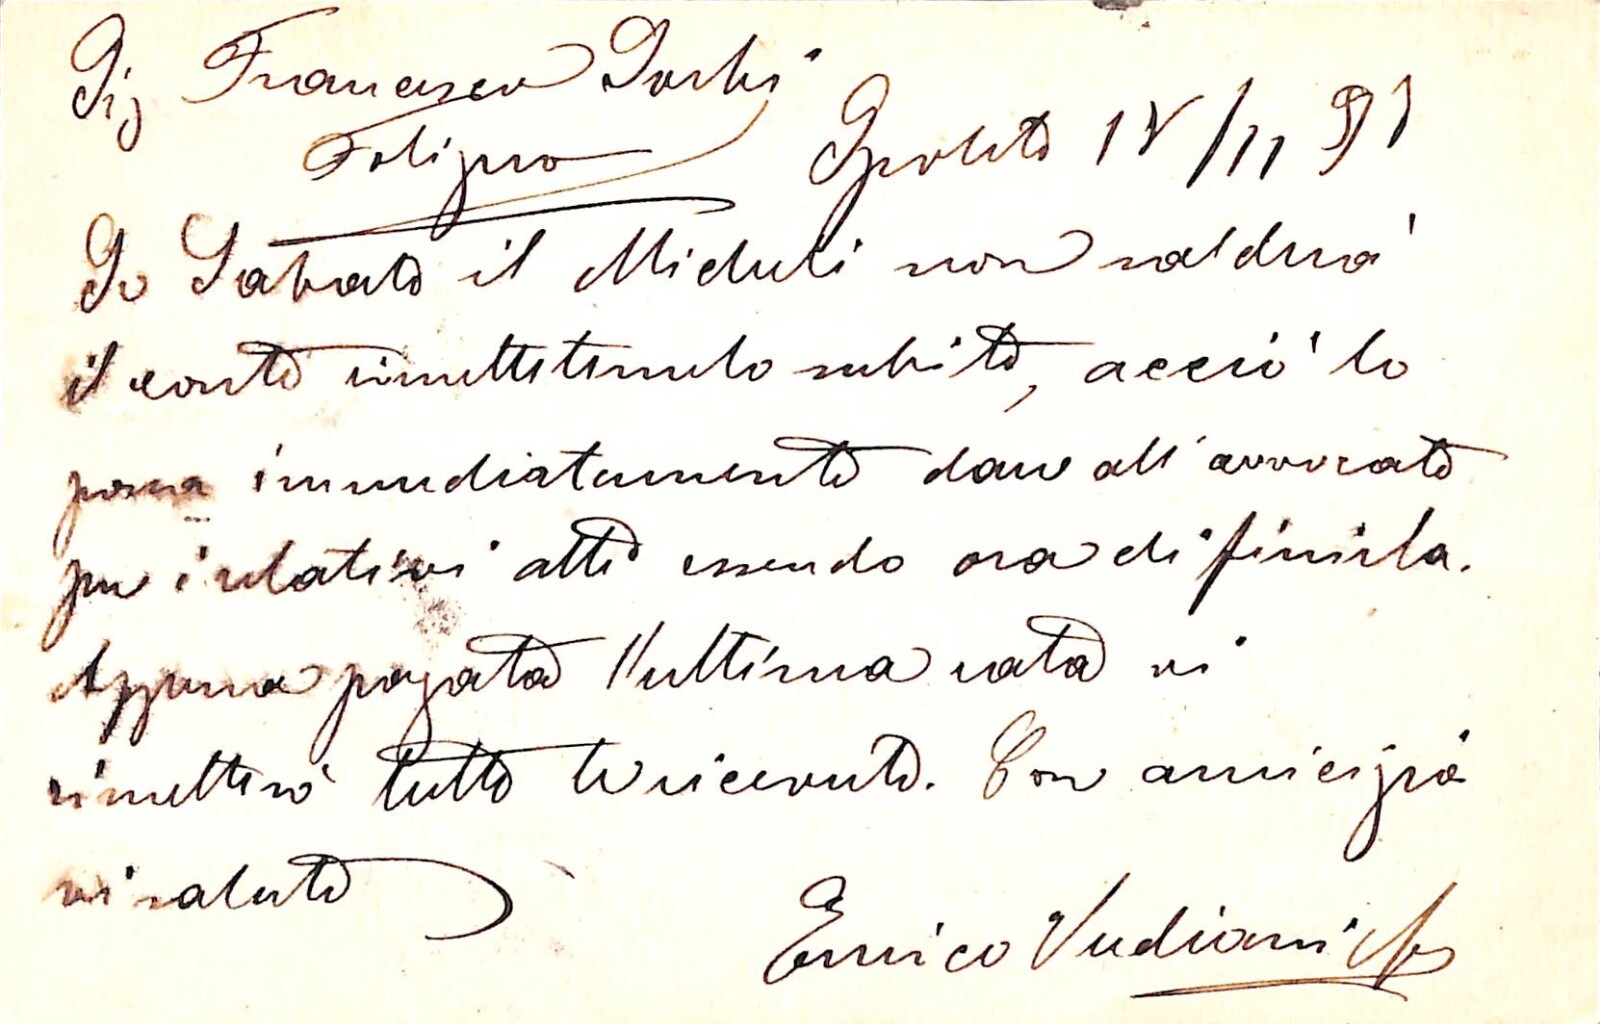 Sig Francesco
Foligno
Spoleto 18/11 91
Se Sabato il Micheli non salderà
il conto rimettetemelo subito, acciò lo
possa immediatamente dare all'avvocato
per i relativi atti essendo ora di finirla.
Appena pagata l'ultima rata vi
rimetterò tutto le ricevute. Con amicizia
vi saluto
Enrico